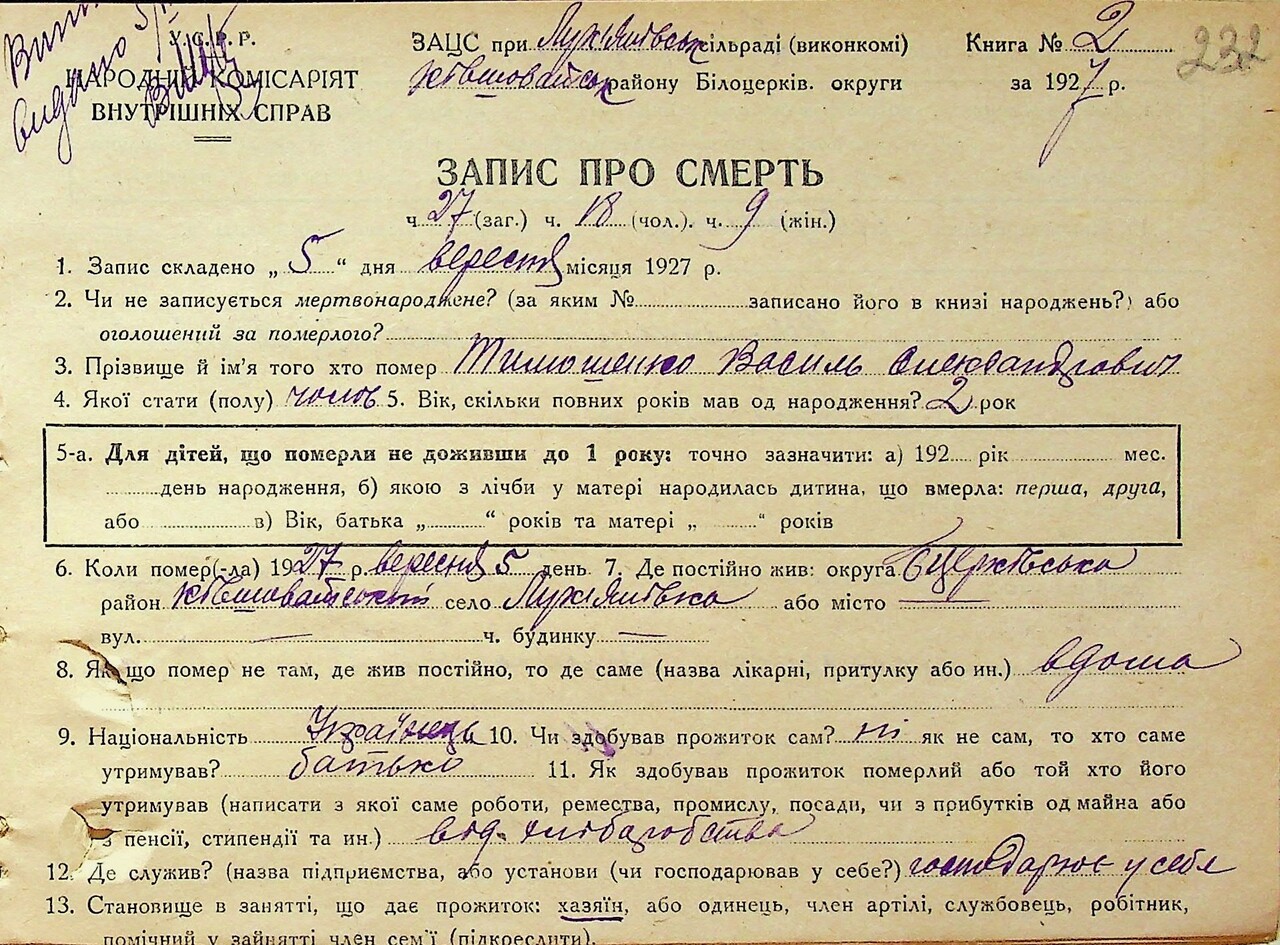 У.С.Р.Р.
НАРОДНІЙ КОМІСАРІЯТ
ВНУТРІШНІХ СПРАВ
ЗАЦС при Лук'янівськ сільраді (виконкомі)
Ківшовайськ району Білоцерків. округи
Книга № 2
за 1927 р.
232
ЗАПИС ПРО СМЕРТЬ
ч. 27 (заг.) ч. 18 (чол.). ч. 9 (жін.)
1. Запис складено „ 5 “ дня вересня місяця 1927 р.
2. Чи не записується мертвонароджене? (за яким № записано його в книзі народжень?) або
оголошений за померлого?
3. Прізвище й ім'я того хто помер Тимошенко Василь Олександрович
4. Якої стати (полу) чолов 5. Вік, скільки повних років мав од народження? 2 рок
5-а. Для дітей, що померли не доживши до 1 року: точно зазначити: а) 192 рік мес.
день народження, б) якою з лічби у матері народилась дитина, що вмерла: перша, друга,
або в) Вік, батька „ “ років та матері „ “ років
6. Коли помер(-ла) 1927 р. вересня 5 день 7. Де постійно жив: округа Бцерківська
район Ківшовайський село Лук'янівка або місто —
вул. — ч. будинку —
8. Як що помер не там, де жив постійно, то де саме (назва лікарні, притулку або ин.) вдома
9. Національність Українець 10. Чи здобував прожиток сам? ні як не сам, то хто саме
утримував? батько 11. Як здобував прожиток померлий або той хто його
утримував (написати з якої саме роботи, ремества, промислу, посади, чи з прибутків од майна або
з пенсії, стипендії та ин.) від хліборобства
12. Де служив? (назва підприємства, або установи (чи господарював у себе?) господарює у себе
13. Становище в занятті, що дає прожиток: хазяїн, або одинець, член артілі, службовець, робітник,
помічний у зайнятті член сем'ї (підкреслити).